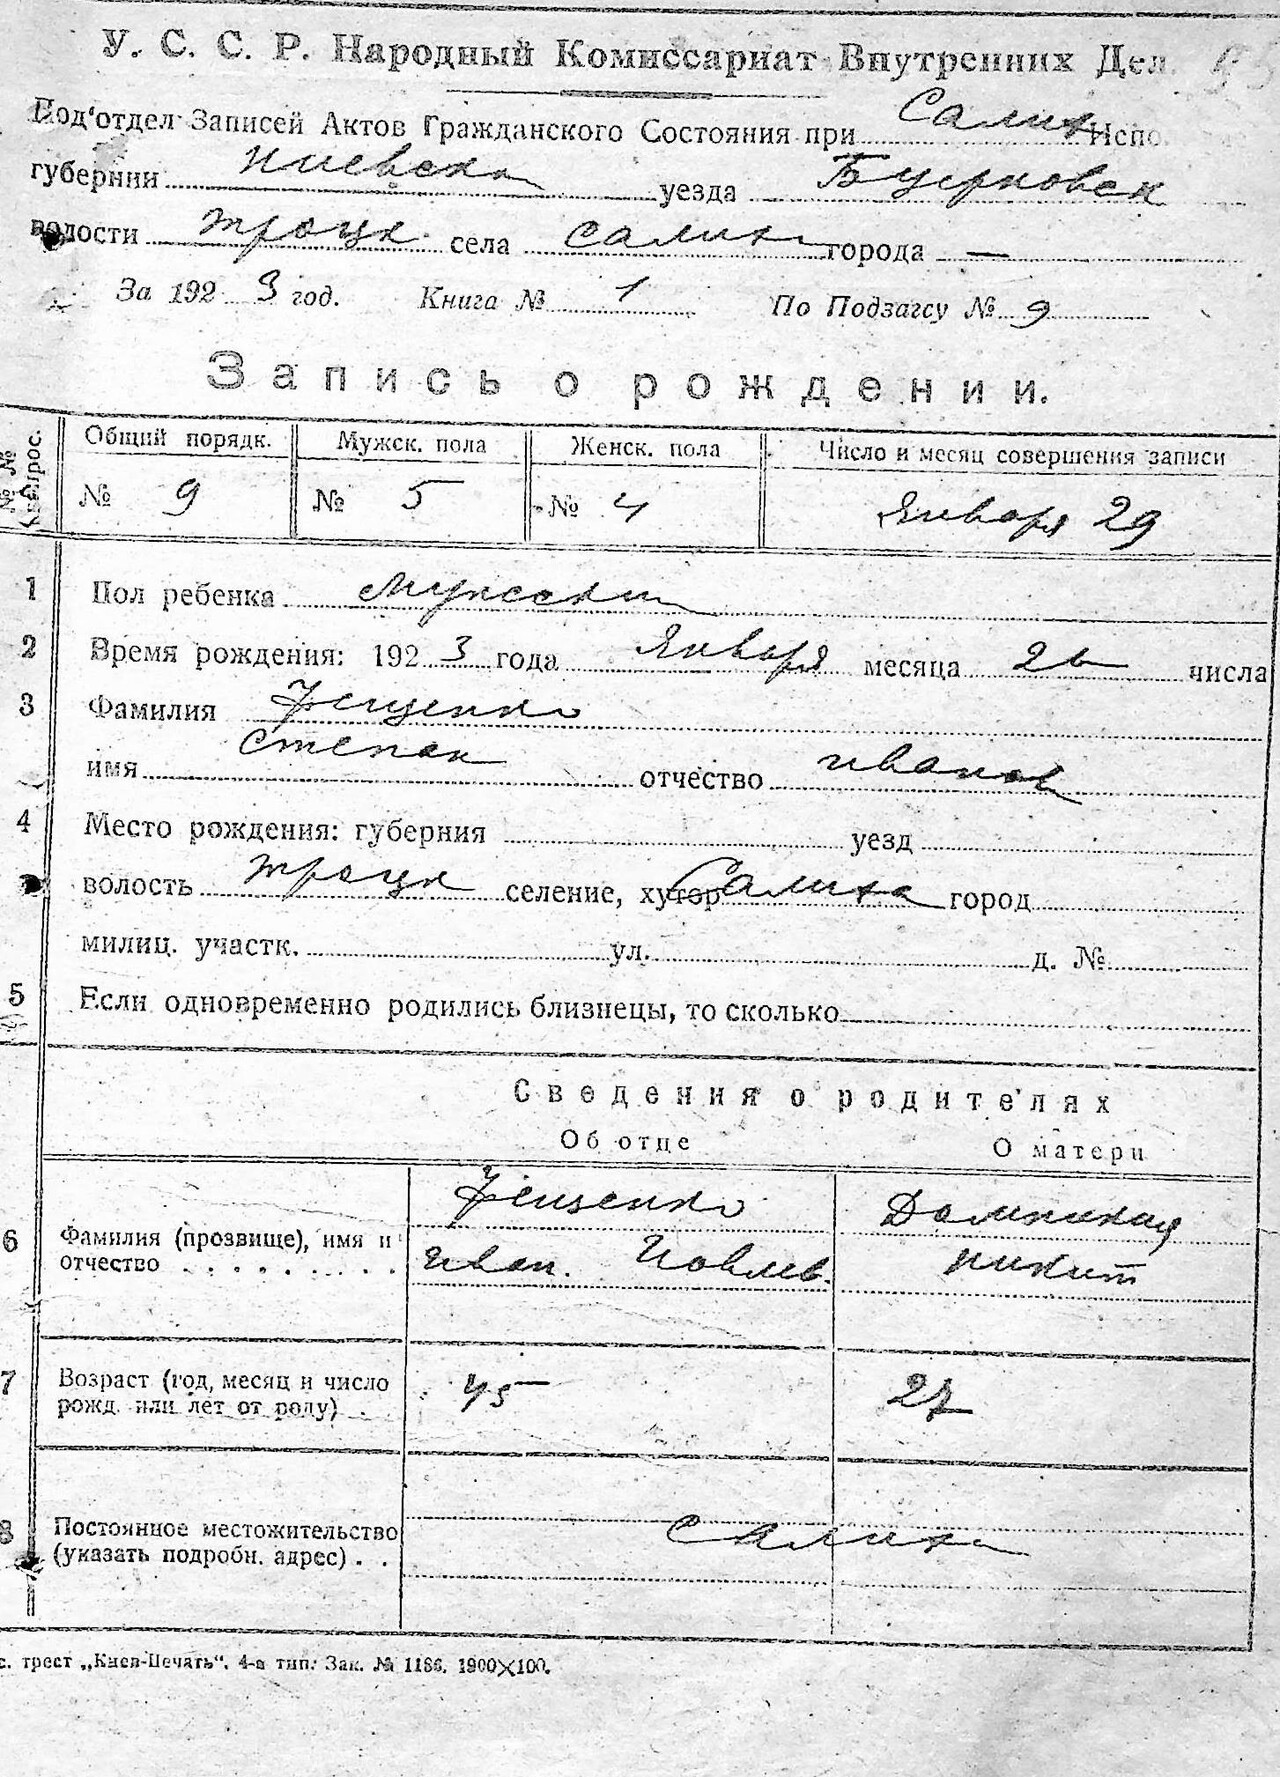 У. С. С. Р. Народный Комиссариат Внутренних Дел.
Под'отдел Записей Актов Гражданского Состояния при Салих Испо
губернии Киевска уезда Бцерковск
волости Троцк. села Салиха города —
За 1923 год. Книга № 1 По Подзагсу № 9
Запись о рождении.
№ № вопрос. Общий порядк. Мужск. пола Женск. пола Число и месяц совершения записи
№ 9 № 5 № 4 Января 29
1 Пол ребенка мужский
2 Время рождения: 1923 года Января месяца числа
3 Фамилия
имя Степан отчество Иванов
4 Место рождения: губерния уезд
волость Троцк селение, хутор Салиха город
милиц. участк. ул. д. №
5 Если одновременно родились близнецы, то сколько
Сведения о родителях
Об отце О матери
6 Фамилия (прозвище), имя и отчество Иван. Иовлев. Домникия Никит
7 Возраст (год, месяц и число рожд. или лет от роду) 45 27
8 Постоянное местожительство (указать подробн. адрес) Салиха
с. трест „Киев-Печать“. 4-я тип. Зак. № 1186. 1900×100.